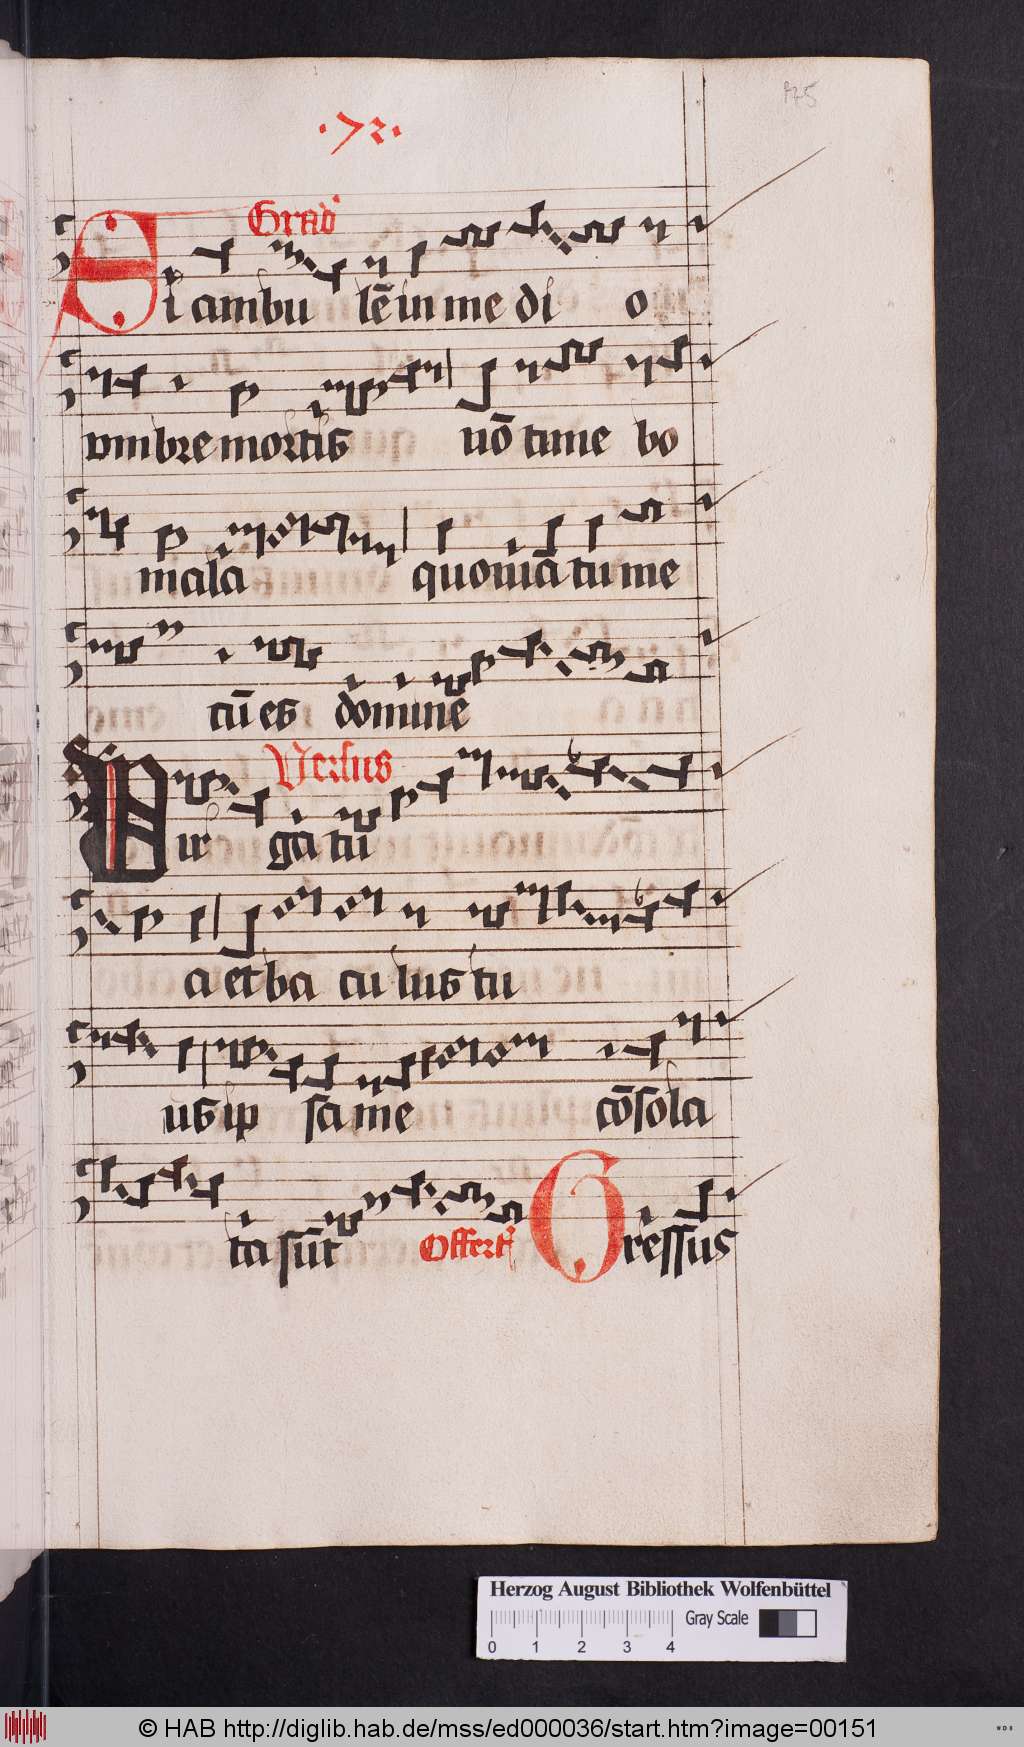 ·72·
175
Grad
Si ambu lē in me di o
vmbre mortis nō time bo
mala quoniā tu me
cū es domine
Versus
Vir ga tu
a et ba cu lus tu
us ip sa me cōsola
ta sūt Offert Gressus
Herzog August Bibliothek Wolfenbüttel
Gray Scale
0 1 2 3 4
© HAB http://diglib.hab.de/mss/ed000036/start.htm?image=00151